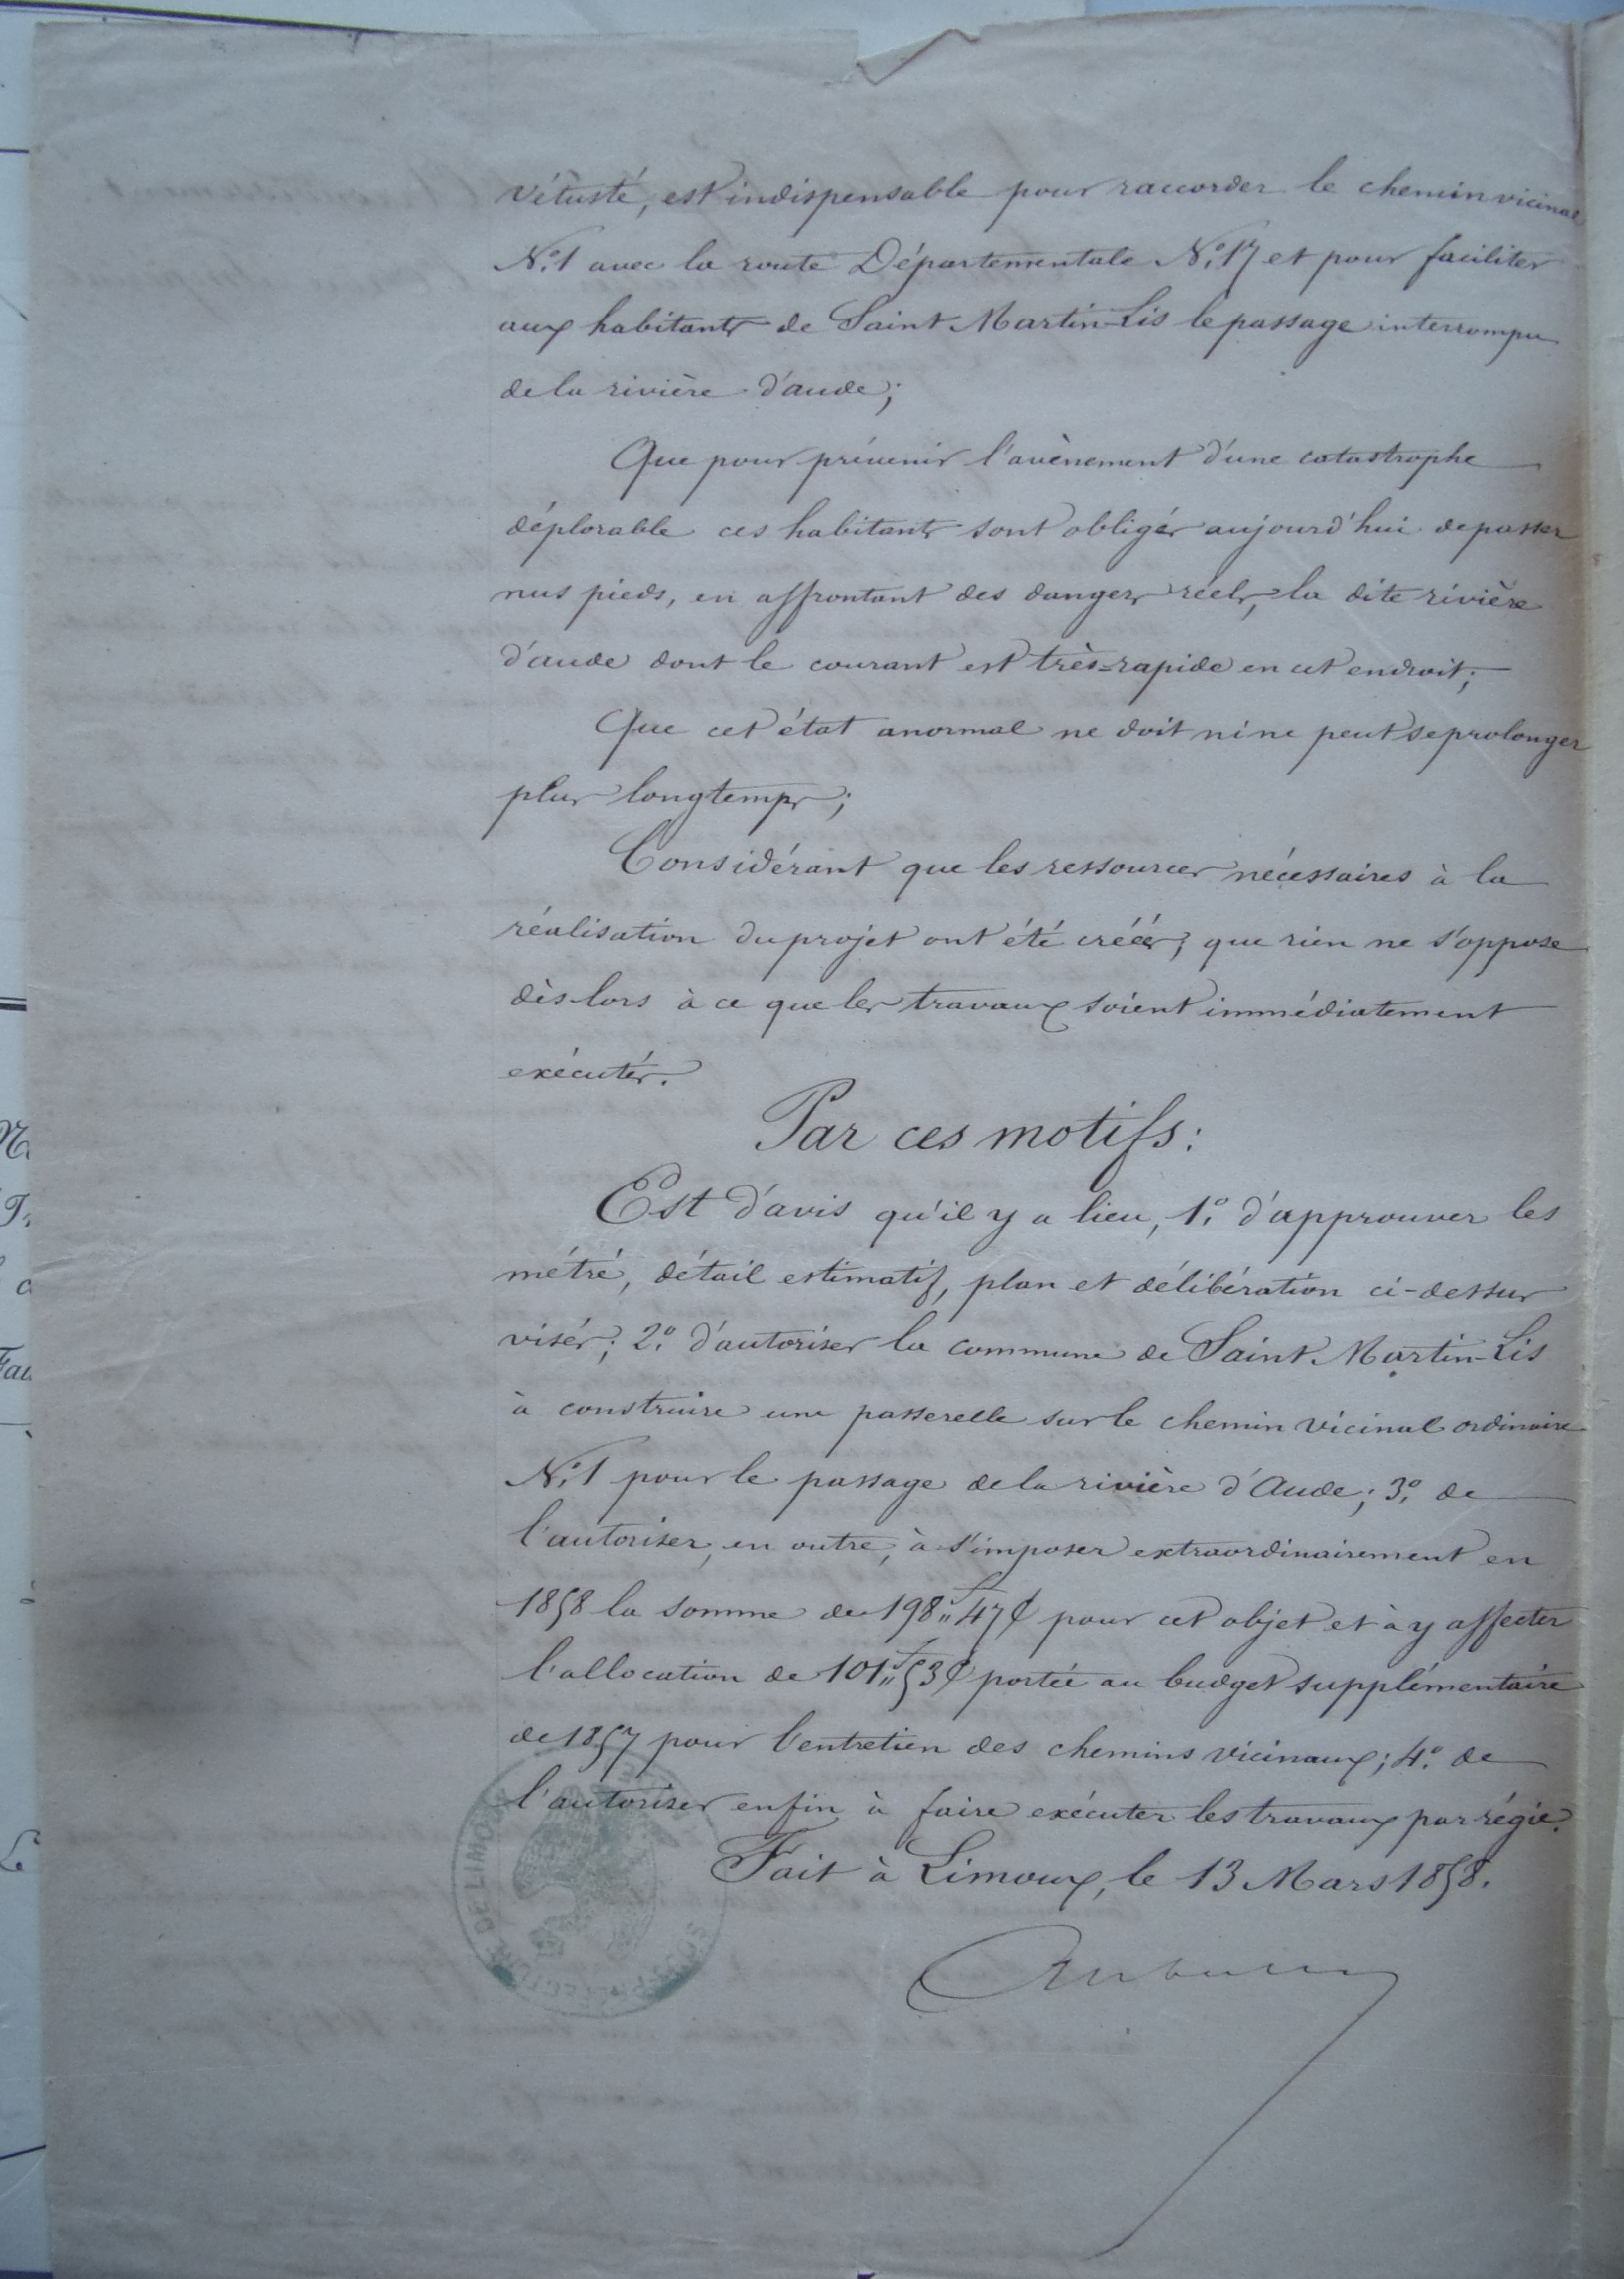 vétusté, est indispensable pour raccorder le chemin vicinal
N.° 1 avec la route Départementale N.° 17 et pour faciliter
aux habitants de Saint Martin-Lis le passage interrompu
de la rivière d'aude;
Que pour prévenir l'avènement d'une catastrophe
déplorable ces habitants sont obligés aujourd'hui de passer
nus pieds, en affrontant des dangers réels, la dite rivière
d'aude dont le courant est très-rapide en cet endroit;
Que cet état anormal ne doit ni ne peut se prolonger
plus longtemps;
Considérant que les ressources nécessaires à la
réalisation du projet ont été créés; que rien ne s'oppose
dès-lors à ce que les travaux soient immédiatement
exécutés.
Par ces motifs:
Est d'avis qu'il y a lieu, 1.° d'approuver les
métré, détail estimatif, plan et délibération ci-dessus
visés; 2.° d'autoriser la commune de Saint Martin-Lis
à construire une passerelle sur le chemin vicinal ordinaire
N.° 1 pour le passage de la rivière d'Aude; 3.° de
l'autoriser, en outre, à s'imposer extraordinairement en
1858 la somme de 198f 47c pour cet objet et à y affecter
l'allocation de 101f 53c portée au budget supplémentaire
de 1857 pour l'entretien des chemins vicinaux; 4.° de
l'autoriser enfin à faire exécuter les travaux par régie.
Fait à Limoux, le 13 Mars 1858.
SOUS-PRÉFECTURE DE LIMOUX